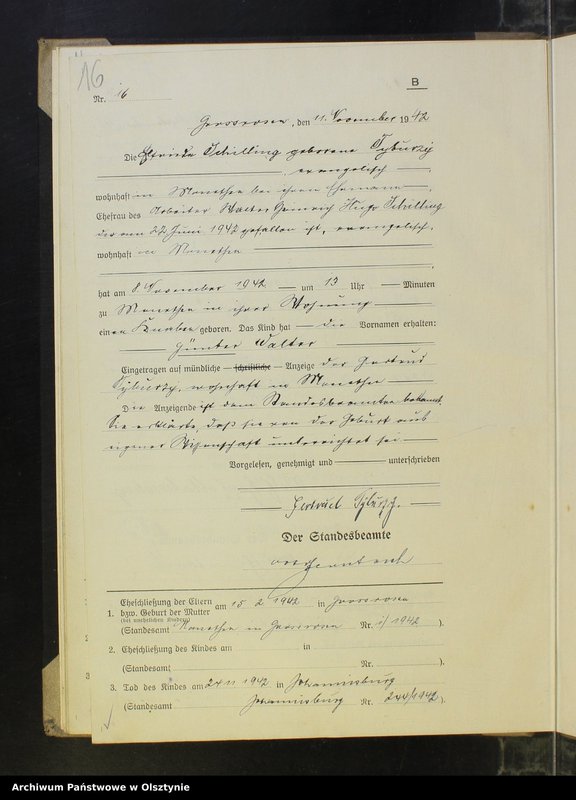 16
B
Nr. 16
Grossrosen, den 11. November 1942
Die Elfriede Schilling geborene Tyburzy
, evangelisch
wohnhaft in Monethen bei ihrem Ehemann
Ehefrau des Arbeiter Walter Heinrich Hugo Schilling
der am 27. Juni 1942 gefallen ist, evangelisch,
wohnhaft in Monethen
,
hat am 8. November 1942 um 13 Uhr Minuten
zu Monethen in ihrer Wohnung
einen Knaben geboren. Das Kind hat die Vornamen erhalten:
Günter Walter
Eingetragen auf mündliche – schriftliche – Anzeige der Gertrud
Tyburzy, wohnhaft in Monethen
Die Anzeigende ist dem Standesbeamten bekannt.
Sie erklärte, daß sie von der Geburt aus
eigener Wissenschaft unterrichtet sei
Vorgelesen, genehmigt und unterschrieben
Gertrud Tyburzy.
Der Standesbeamte
1. Eheschließung der Eltern am 15.2.1942 in Grossrosen
bzw. Geburt der Mutter
(bei unehelichen Kindern)
(Standesamt Monethen in Grossrosen Nr. 1942 ).
2. Eheschließung des Kindes am in
(Standesamt Nr. ).
3. Tod des Kindes am 24.11.1942 in Johannisburg
(Standesamt Johannisburg Nr. 244/1942 ).
Archiwum Państwowe w Olsztynie